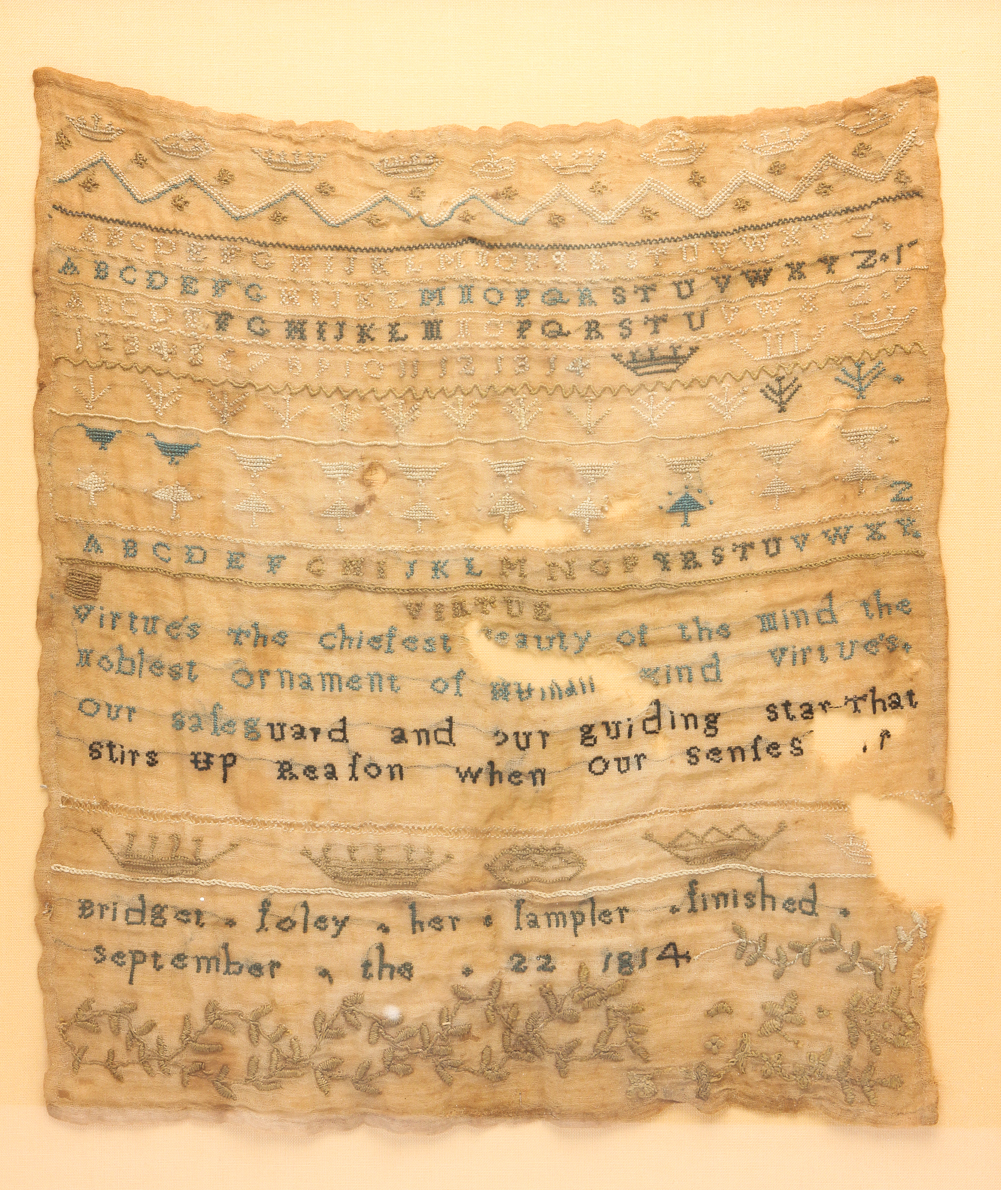 A B C D E F G H I J K L M N O P Q R S T U V W X Y Z
A B C D E F G H I J K L M N O P Q R S T U V W X Y Z
A B C D E F G H I J K L M N O P Q R S T U V W X
1 2 3 4 5 6 7 8 9 10 11 12 13 14
Z
A B C D E F G H I J K L M N O P Q R S T U V W X Y
VIRTUE
Virtue's The chiefest eauty of the Mind the
Noblest Ornament of Human ind Virtue's
Our safeguard and our guiding star That
stirs up Reaſon when Our Senſes
Bridget . foley . her . ſampler . finished .
September . the . 22 1814